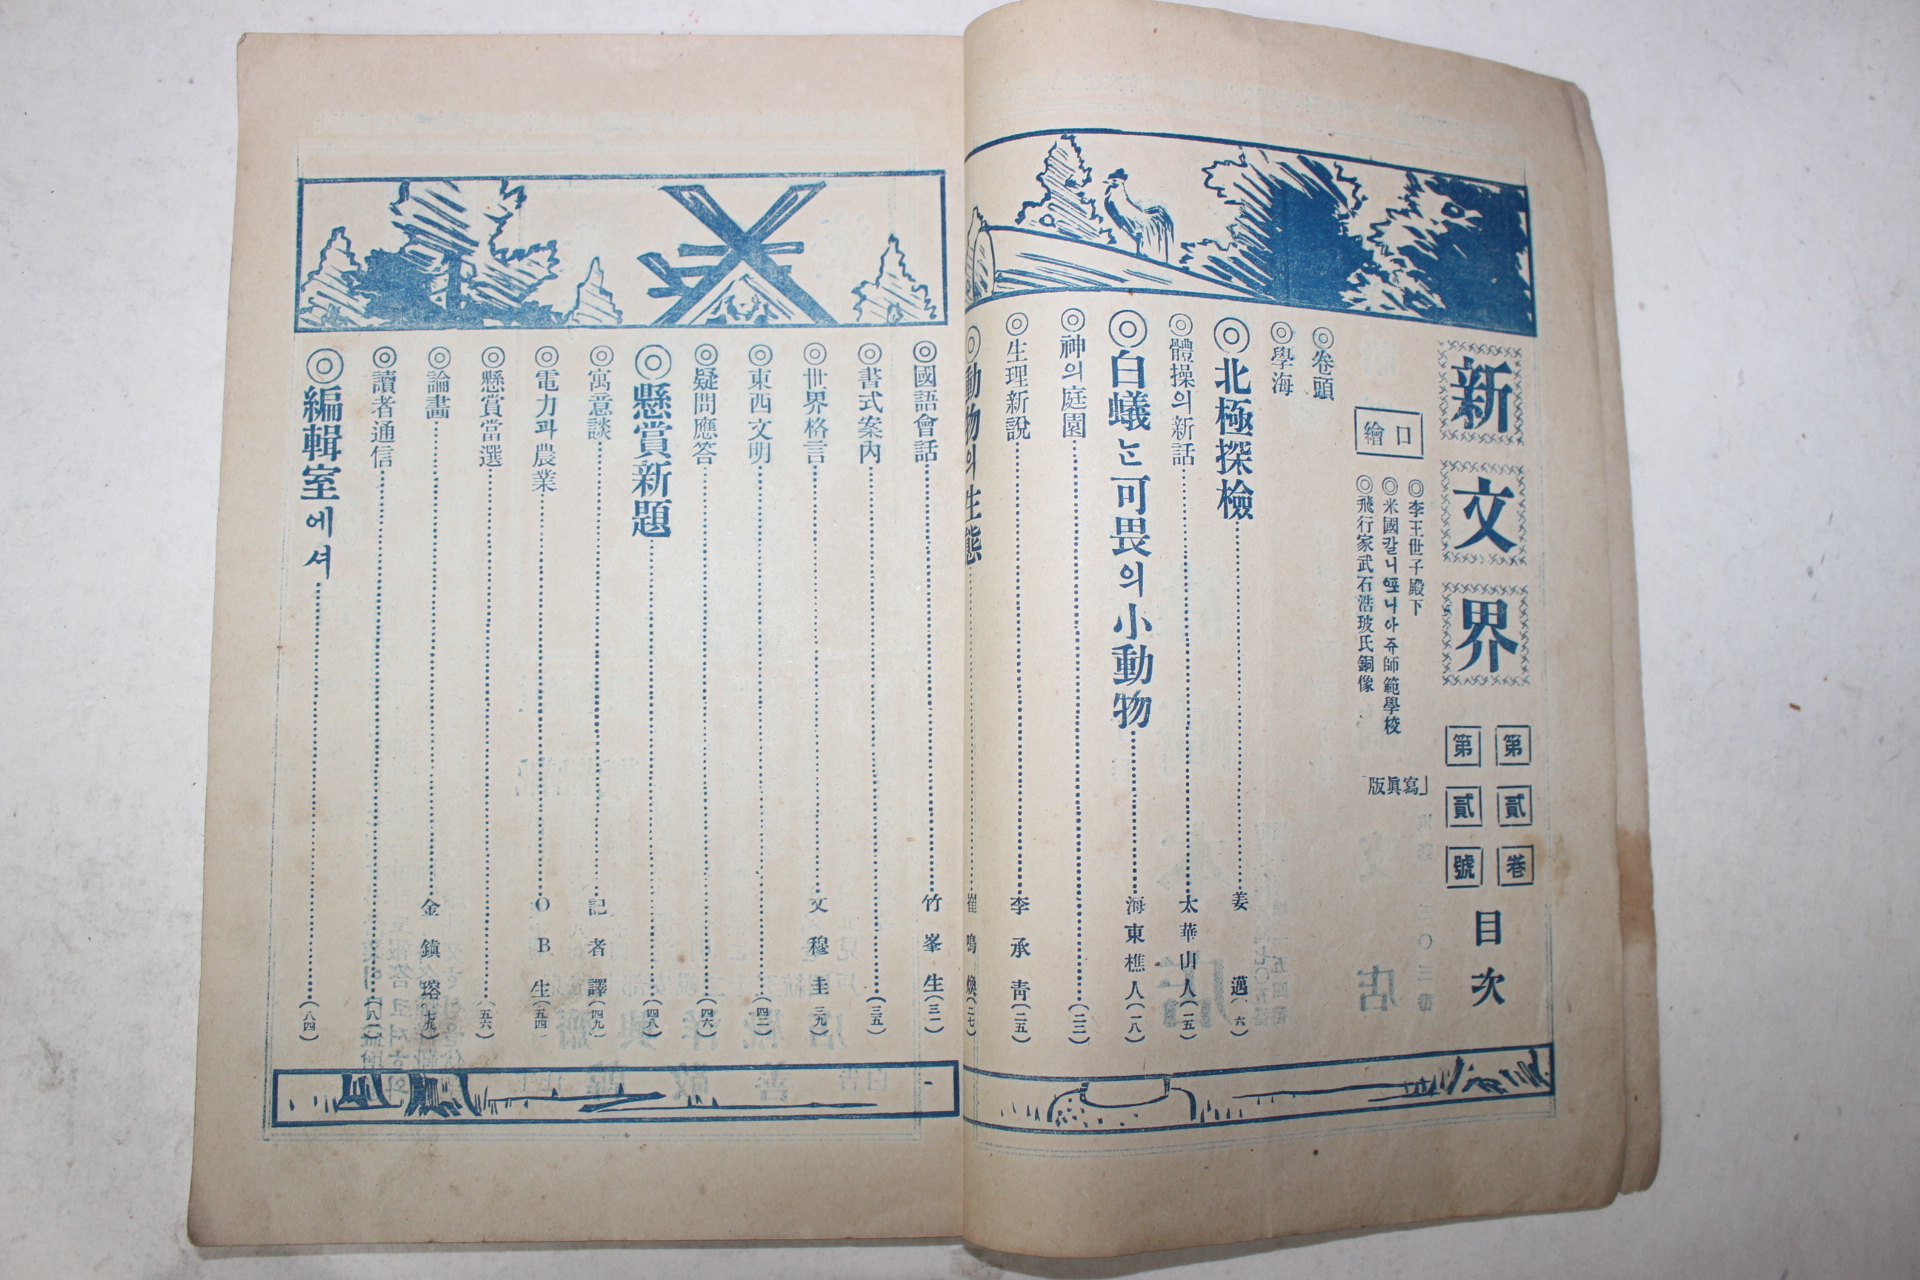 新文界
第貳卷
第貳號
目次
口繪
◎李王世子殿下
◎米國칼니포니아쥬師範學校
◎飛行家武石浩玻氏銅像
「寫眞版」
◎卷頭
◎學海
◎北極探檢 姜邁(六)
◎體操의新話 太華山人(一五)
◎白蟻는可畏의小動物 海東樵人(一八)
◎神의庭園 (二二)
◎生理新說 李承靑(二五)
◎動物의生態 崔鳴煥(二七)
◎國語會話 竹峯生(三一)
◎書式案內 (三五)
◎世界格言 文穆圭(三九)
◎東西文明 (四二)
◎疑問應答 (四六)
◎懸賞新題 (四八)
◎寓意談 記者譯(四九)
◎電力과農業 OB生(五四)
◎懸賞當選 (五六)
◎論畵 金鎭瑢(七九)
◎讀者通信 (八二)
◎編輯室에셔 (八四)